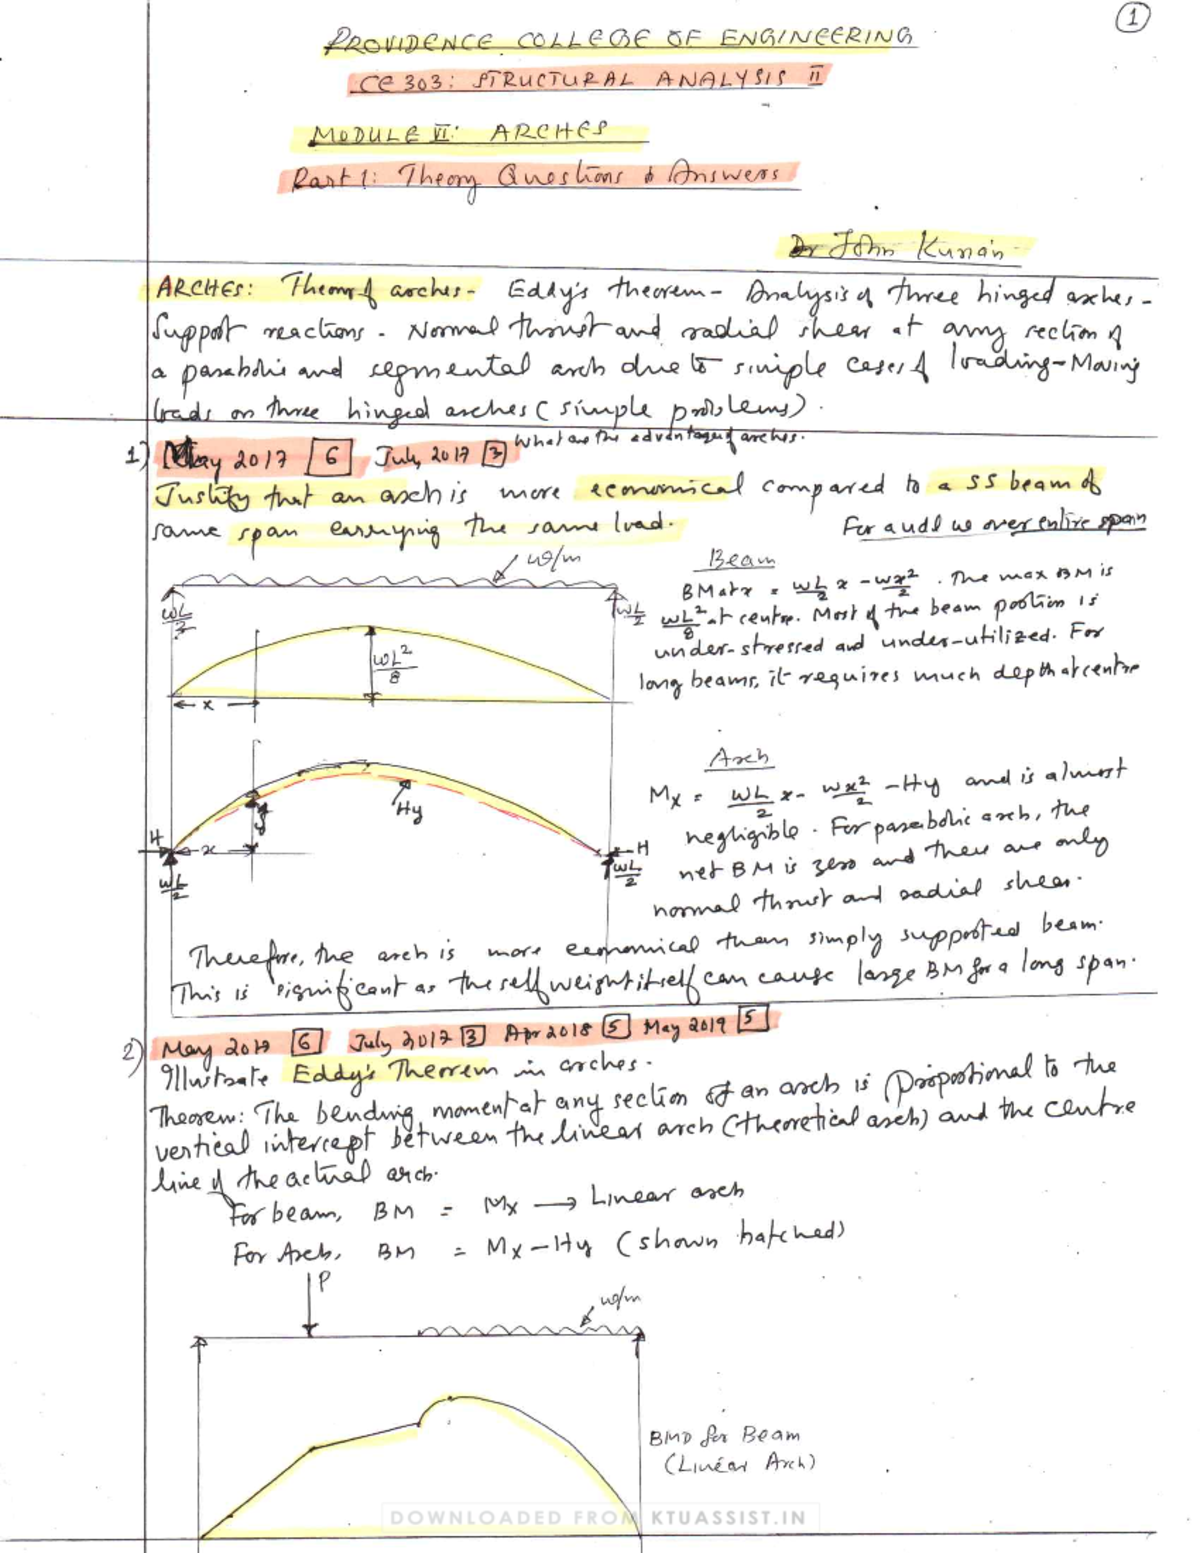 1
PROVIDENCE COLLEGE OF ENGINEERING
CE 303: STRUCTURAL ANALYSIS II
MODULE VI: ARCHES
Part 1: Theory Questions & Answers
Dr John Kurian
ARCHES: Theory of arches - Eddy's theorem - Analysis of three hinged arches -
Support reactions - Normal thrust and radial shear at any section of
a parabolic and segmental arch due to simple cases of loading - Moving
loads on three hinged arches (simple problems).
What are the advantages of arches.
1) May 2017 6 July 2017 3
Justify that an arch is more economical compared to a SS beam of
same span carrying the same load.
For a udl w over entire span
w/m
Beam
BM at x = wL/2 x - wx²/2 . The max BM is
wL²/8 at centre. Most of the beam portion is
under-stressed and under-utilized. For
long beams, it requires much depth at centre
wL/2
wL/2
wL²/8
x
Arch
Mx = wL/2 x - wx²/2 - Hy and is almost
negligible. For parabolic arch, the
net BM is zero and there are only
normal thrust and radial shear.
Hy
y
H
x
H
wL/2
wL/2
Therefore, the arch is more economical than simply supported beam.
This is significant as the self weight itself can cause large BM for a long span.
2) May 2017 6 July 2017 3 Apr 2018 5 May 2019 5
Illustrate Eddy's Theorem in arches.
Theorem: The bending moment at any section of an arch is proportional to the
vertical intercept between the linear arch (theoretical arch) and the centre
line of the actual arch.
For beam, BM = Mx → Linear arch
For Arch, BM = Mx - Hy (shown hatched)
P
w/m
BMD for Beam
(Linear Arch)
DOWNLOADED FROM KTUASSIST.IN